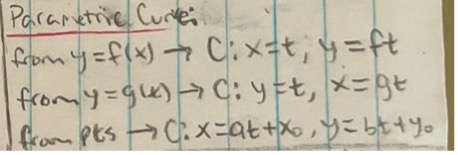 Parametric Curve:
from y=f(x) → C: x=t, y=ft
from y=g(x) → C: y=t, x=gt
from pts → C: x=at+x₀, y=bt+y₀